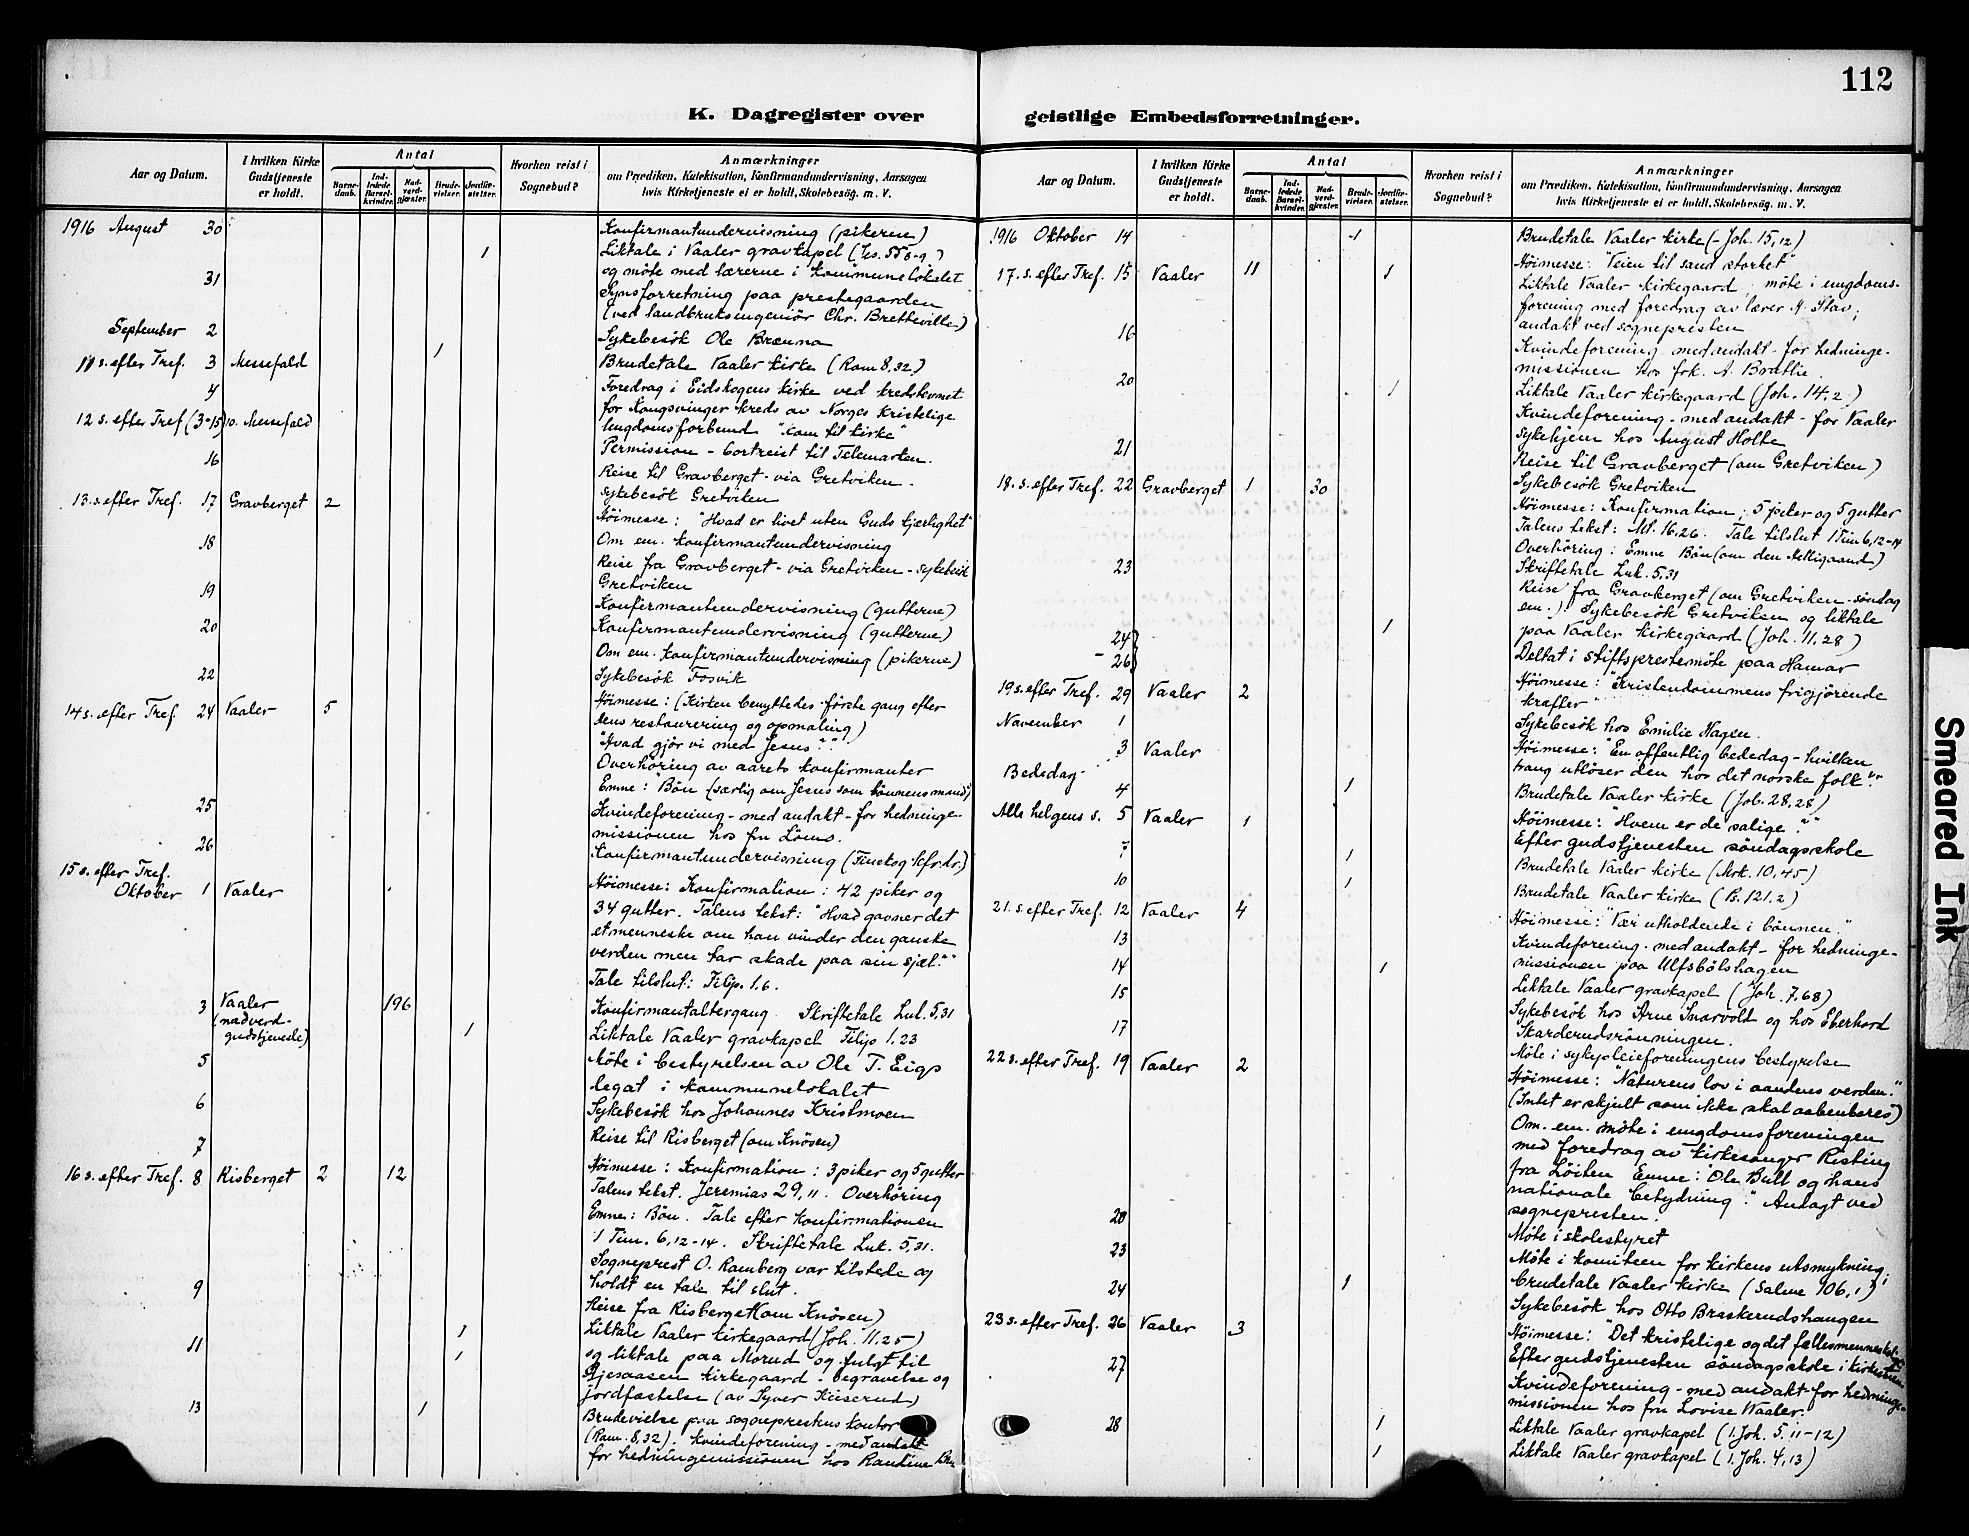 112
K. Dagregister over
geistlige Embedsforretninger.
Aar og Datum.
I hvilken Kirke Gudstjeneste er holdt.
Antal
Barne-daab.
Ind-ledede Barsel-kvinder.
Nad-verd-gjæster.
Brude-vielser.
Jordfæ-stelser.
Hvorhen reist i Sognebud?
Anmærkninger
om Prædiken, Katekisation, Konfirmandundervisning, Aarsagen
hvis Kirketjeneste ei er holdt, Skolebesøg. m. V.
1916 August 30 Konfirmantundervisning (pikerne)
1 Liktale i Vaaler gravkapel (Jes. 55 6-9)
og møte med lærerne i kommunelokalet
31 Synsforretning paa prestegaarden
(ved landbruksingeniör Chr. Bretteville)
September 2 Sykebesök Ole Brænna
1 Brudetale Vaaler kirke (Rom 8,32)
11 s. efter Tref. 3 Messefald
4 Foredrag i Eidskogens kirke ved kredsstevnet
for Kongsvinger kreds av Norges Kristelige
Ungdomsforbund "Kom til kirke"
12 s. efter Tref (3-15) 10. Messefald
Permission - bortreist til Telemarken.
16 Reise til Gravberget - via Gretviken.
Sykebesök Gretviken
13. s. efter Tref. 17 Gravberget 2
Höimesse: "Hvad er livet uten Guds kjerlighet"
Om em. konfirmantundervisning
18 Reise fra Gravberget - via Gretviken - sykebesök
Gretviken
19 Konfirmantundervisning (gutterne)
20 Konfirmantundervisning (gutterne)
Om em. konfirmantundervisning (pikerne)
22 Sykebesök Fosvik
14 s. efter Tref. 24 Vaaler 5
Höimesse: (Kirken benyttedes förste gang efter
dens restaurering og opmaling)
"Hvad gjör vi med Jesus?"
Overhöring av aarets konfirmanter
Emne: Bön (særlig om Jesus som bönnens mand)
25 Kvindeforening - med andakt - for hedninge-
missionen hos fru Löms.
26 Konfirmantundervisning (Finskog
15 s. efter Tref.
Oktober 1 Vaaler
Höimesse: Konfirmation: 42 piker og
34 gutter. Talens tekst: "Hvad gavner det
et menneske om han vinder den ganske
verden men tar skade paa sin sjæl?"
Tale tilslut: Filip. 1.6.
3 Vaaler (nadverd-gudstjeneste) 196
Konfirmantaltergang. Skriftetale Luk. 5,31
1 Liktale Vaaler gravkapel Filip 1,23
5 Möte i bestyrelsen av Ole T. Eigs
legat i kommunelokalet
6 Sykebesök hos Johannes Kristmoen
7 Reise til Risberget (om Knösen)
16 s. efter Tref. 8 Risberget 2 12
Höimesse: Konfirmation: 3 piker og 5 gutter
Talens tekst. Jeremias 29,11. Overhöring
Emne: Bön. Tale efter konfirmationen
1 Tim. 6,12-14. Skriftetale Luk. 5,31.
Sogneprest O. Ramberg var tilstede og
holdt en tale til slut.
9 Reise fra Risberget (om Knösen)
1 Liktale Vaaler kirkegaard (Joh. 11.25)
11 1 og liktale paa Morud og fulgt til
Gjesaasen kirkegaard - begravelse og
jordfæstelse (av Syver
13 1 Brudevielse paa sogneprestens kontor
(Rom. 8,32). Kvindeforening - med andakt
for hedningemissionen hos Randine
Aar og Datum.
I hvilken Kirke Gudstjeneste er holdt.
Antal
Barne-daab.
Ind-ledede Barsel-kvinder.
Nad-verd-gjæster.
Brude-vielser.
Jordfæ-stelser.
Hvorhen reist i Sognebud?
Anmærkninger
om Prædiken, Katekisation, Konfirmandundervisning, Aarsagen
hvis Kirketjeneste ei er holdt, Skolebesøg. m. V.
1916 Oktober 14 1 Brudetale Vaaler kirke (Joh. 15,12)
17. s. efter Tref. 15 Vaaler 11 1
Höimesse: "Veien til sand storhet"
Liktale Vaaler kirkegaard; möte i ungdoms-
forening med foredrag av lærer M. Stav;
andakt ved sognepresten
16 Kvindeforening - med andakt - for hedninge-
missionen hos frk. A. Brattlie.
20 1 Liktale Vaaler kirkegaard (Joh. 14.2)
Kvindeforening - med andakt - for Vaaler
sykehjem hos August Holte
21 Reise til Gravberget (om Gretviken)
Sykebesök Gretviken
18. s. efter Tref. 22 Gravberget 1 30
Höimesse: Konfirmation; 5 piker og 5 gutter
Talens tekst: Mt. 16.26. Tale tilslut 1 Tim 6,12-14
Overhöring: Emne Bön (om den Helligaand)
Skriftetale Luk. 5,31
23 Reise fra Gravberget (om Gretviken - söndag
em.). Sykebesök Gretviken og liktale
1 paa Vaaler kirkegaard (Joh. 11.28)
24
- 26 Deltat i stiftsprestemöte paa Hamar
19 s. efter Tref. 29 Vaaler 2
Höimesse: "Kristendommens frigjörende
krafter"
November 1 Sykebesök hos Emilie Hagen.
3 Vaaler
Bededag
Höimesse: "En offentlig bededag - hvilken
trang utlöser den hos det norske folk?"
4 1 Brudetale Vaaler kirke (Job. 28,28)
Alle helgens s. 5 Vaaler 1
Höimesse: "Hvem er de salige?"
Efter gudstjenesten söndagsskole
7 1 Brudetale Vaaler kirke (Mrk. 10,45)
10 1 Brudetale Vaaler kirke (Ps. 121.2)
21. s. efter Tref. 12 Vaaler 4
Höimesse: "Vær utholdende i bönnen."
13 Kvindeforening - med andakt - for hedninge-
missionen paa Ulfsbölshagen
14 1 Liktale Vaaler gravkapel (Joh. 7,68)
15 Sykebesök hos Arne Snarvold og hos Eberhard
Skarderudsrönningen.
17 Möte i sykepleieforeningens bestyrelse
22 s. efter Tref. 19 Vaaler 2
Höimesse: "Naturens lov i aandens verden."
(Intet er skjult som ikke skal aabenbares)
Om. em. möte i ungdomsforeningen
med foredrag av kirkesanger Risting
fra Löiten Emne: "Ole Bull og hans
nationale betydning." Andagt ved
sognepresten.
20 Möte i skolestyret
23 Möte i komiteen for kirkens utsmykning;
24 1 brudetale Vaaler kirke (Salme 106,1)
Sykebesök hos Otto Braskerudshaugen
23 s. efter Tref. 26 Vaaler 3
Höimesse: "Det kristelige og det fællesmenneskel."
Efter gudstjenesten söndagsskole i kirken
27 Kvindeforening - med andakt for hedninge-
missionen hos fru Lovise Vaaler.
28 1 Liktale Vaaler gravkapel (1. Joh. 5.11-12)
1 Liktale Vaaler gravkapel (1. Joh. 4,13)
Smeared Ink